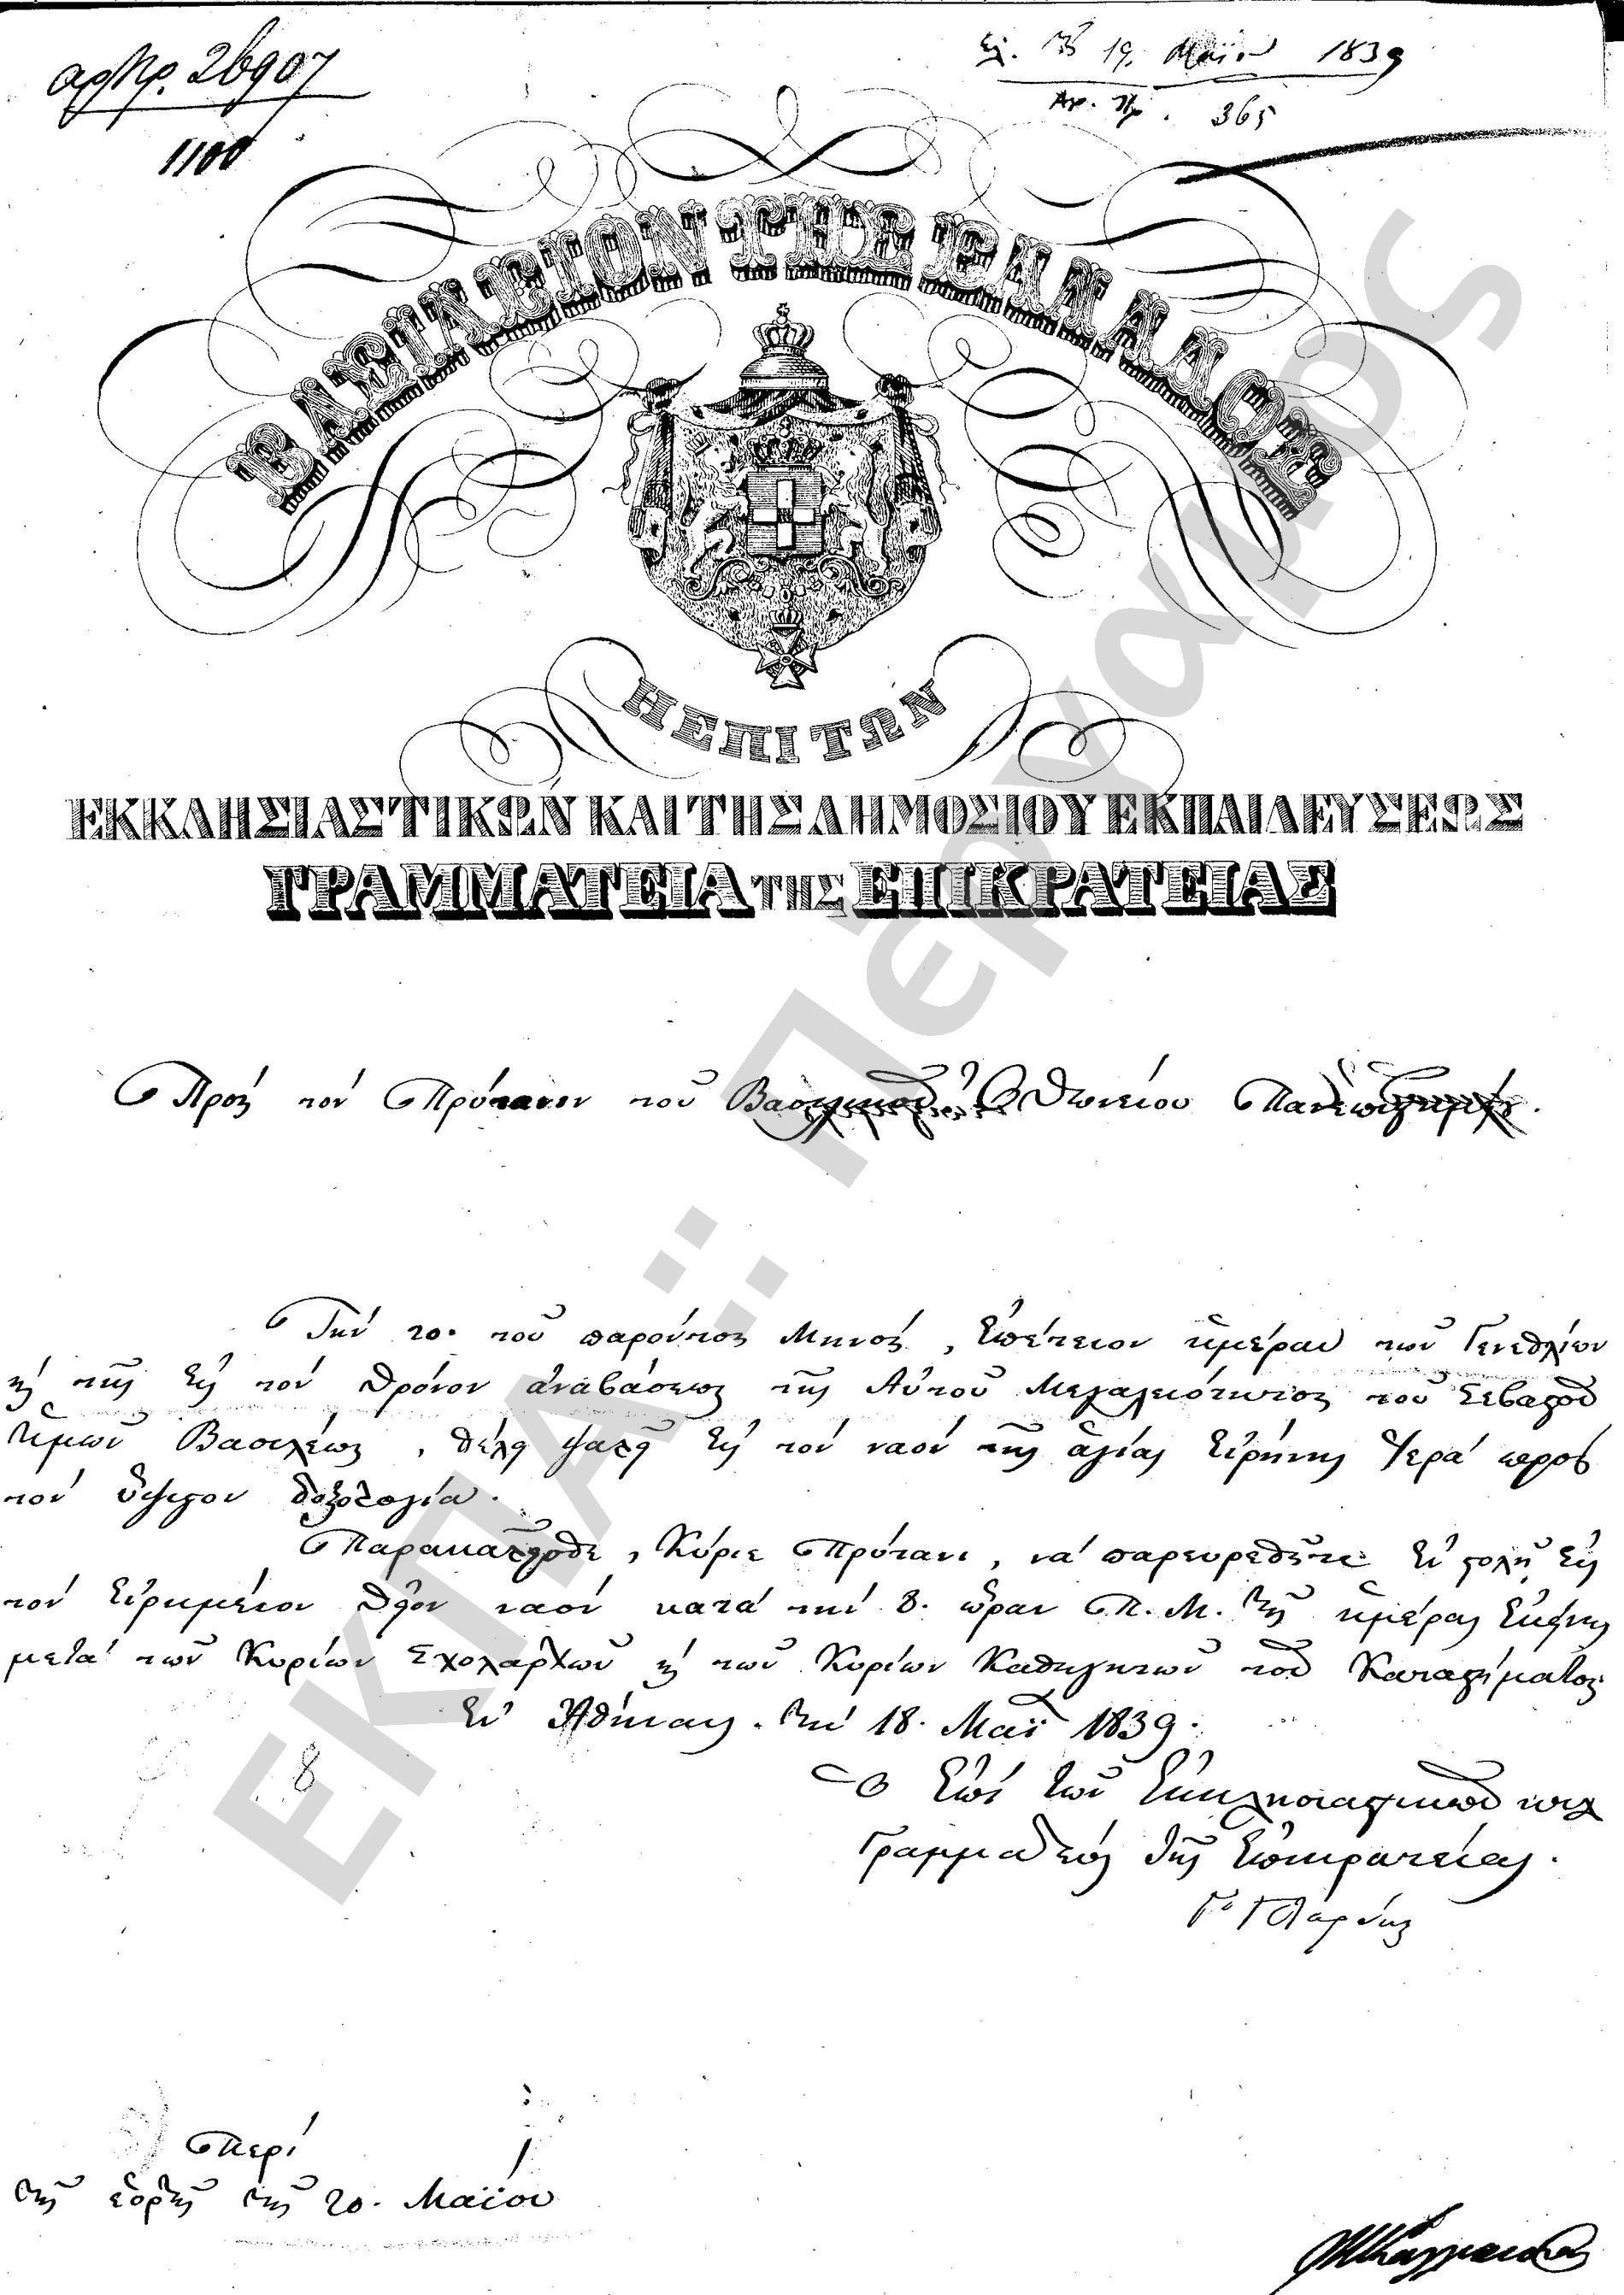 αρ Πρ. 26907
1100
19. Μαΐου 1839
Αρ. Πρ. 365
ΒΑΣΙΛΕΙΟΝ ΤΗΣ ΕΛΛΑΔΟΣ
Η ΕΠΙ ΤΩΝ
ΕΚΚΛΗΣΙΑΣΤΙΚΩΝ ΚΑΙ ΤΗΣ ΔΗΜΟΣΙΟΥ ΕΚΠΑΙΔΕΥΣΕΩΣ
ΓΡΑΜΜΑΤΕΙΑ ΤΗΣ ΕΠΙΚΡΑΤΕΙΑΣ
Πρὸς τὸν Πρύτανιν τοῦ Βασιλικοῦ Ὀθωνείου Πανεπιστημίου.
Τὴν 20. τοῦ παρόντος Μηνὸς, ἐπέτειον ἡμέραν τῶν Γενεθλίων
καὶ τῆς εἰς τὸν θρόνον ἀναβάσεως τῆς Αὐτοῦ Μεγαλειότητος τοῦ Σεβαστοῦ
ἡμῶν Βασιλέως, θέλει ψαλῆ εἰς τὸν ναὸν τῆς ἁγίας Εἰρήνης ἱερὰ πρὸς
τὸν ὕψιστον δοξολογία.
Παρακαλεῖσθε, Κύριε Πρύτανι, νὰ παρευρεθῆτε ἐν στολῇ εἰς
τὸν εἰρημένον θεῖον ναὸν κατὰ τὴν 8. ὥραν Π. Μ. τῆς ἡμέρας ἐκείνης
μετὰ τῶν Κυρίων Σχολαρχῶν καὶ τῶν Κυρίων Καθηγητῶν τοῦ Καταστήματος.
Ἐν Ἀθήναις. τὴν 18. Μαΐ 1839.
8
Ὁ ἐπὶ τῶν Ἐκκλησιαστικῶν κτλ
Γραμματεὺς τῆς Ἐπικρατείας.
Γ. Γλαράκης
Περὶ
τῆς ἑορτῆς τῆς 20. Μαΐου
ΕΚΠΑ: Πέργαμος